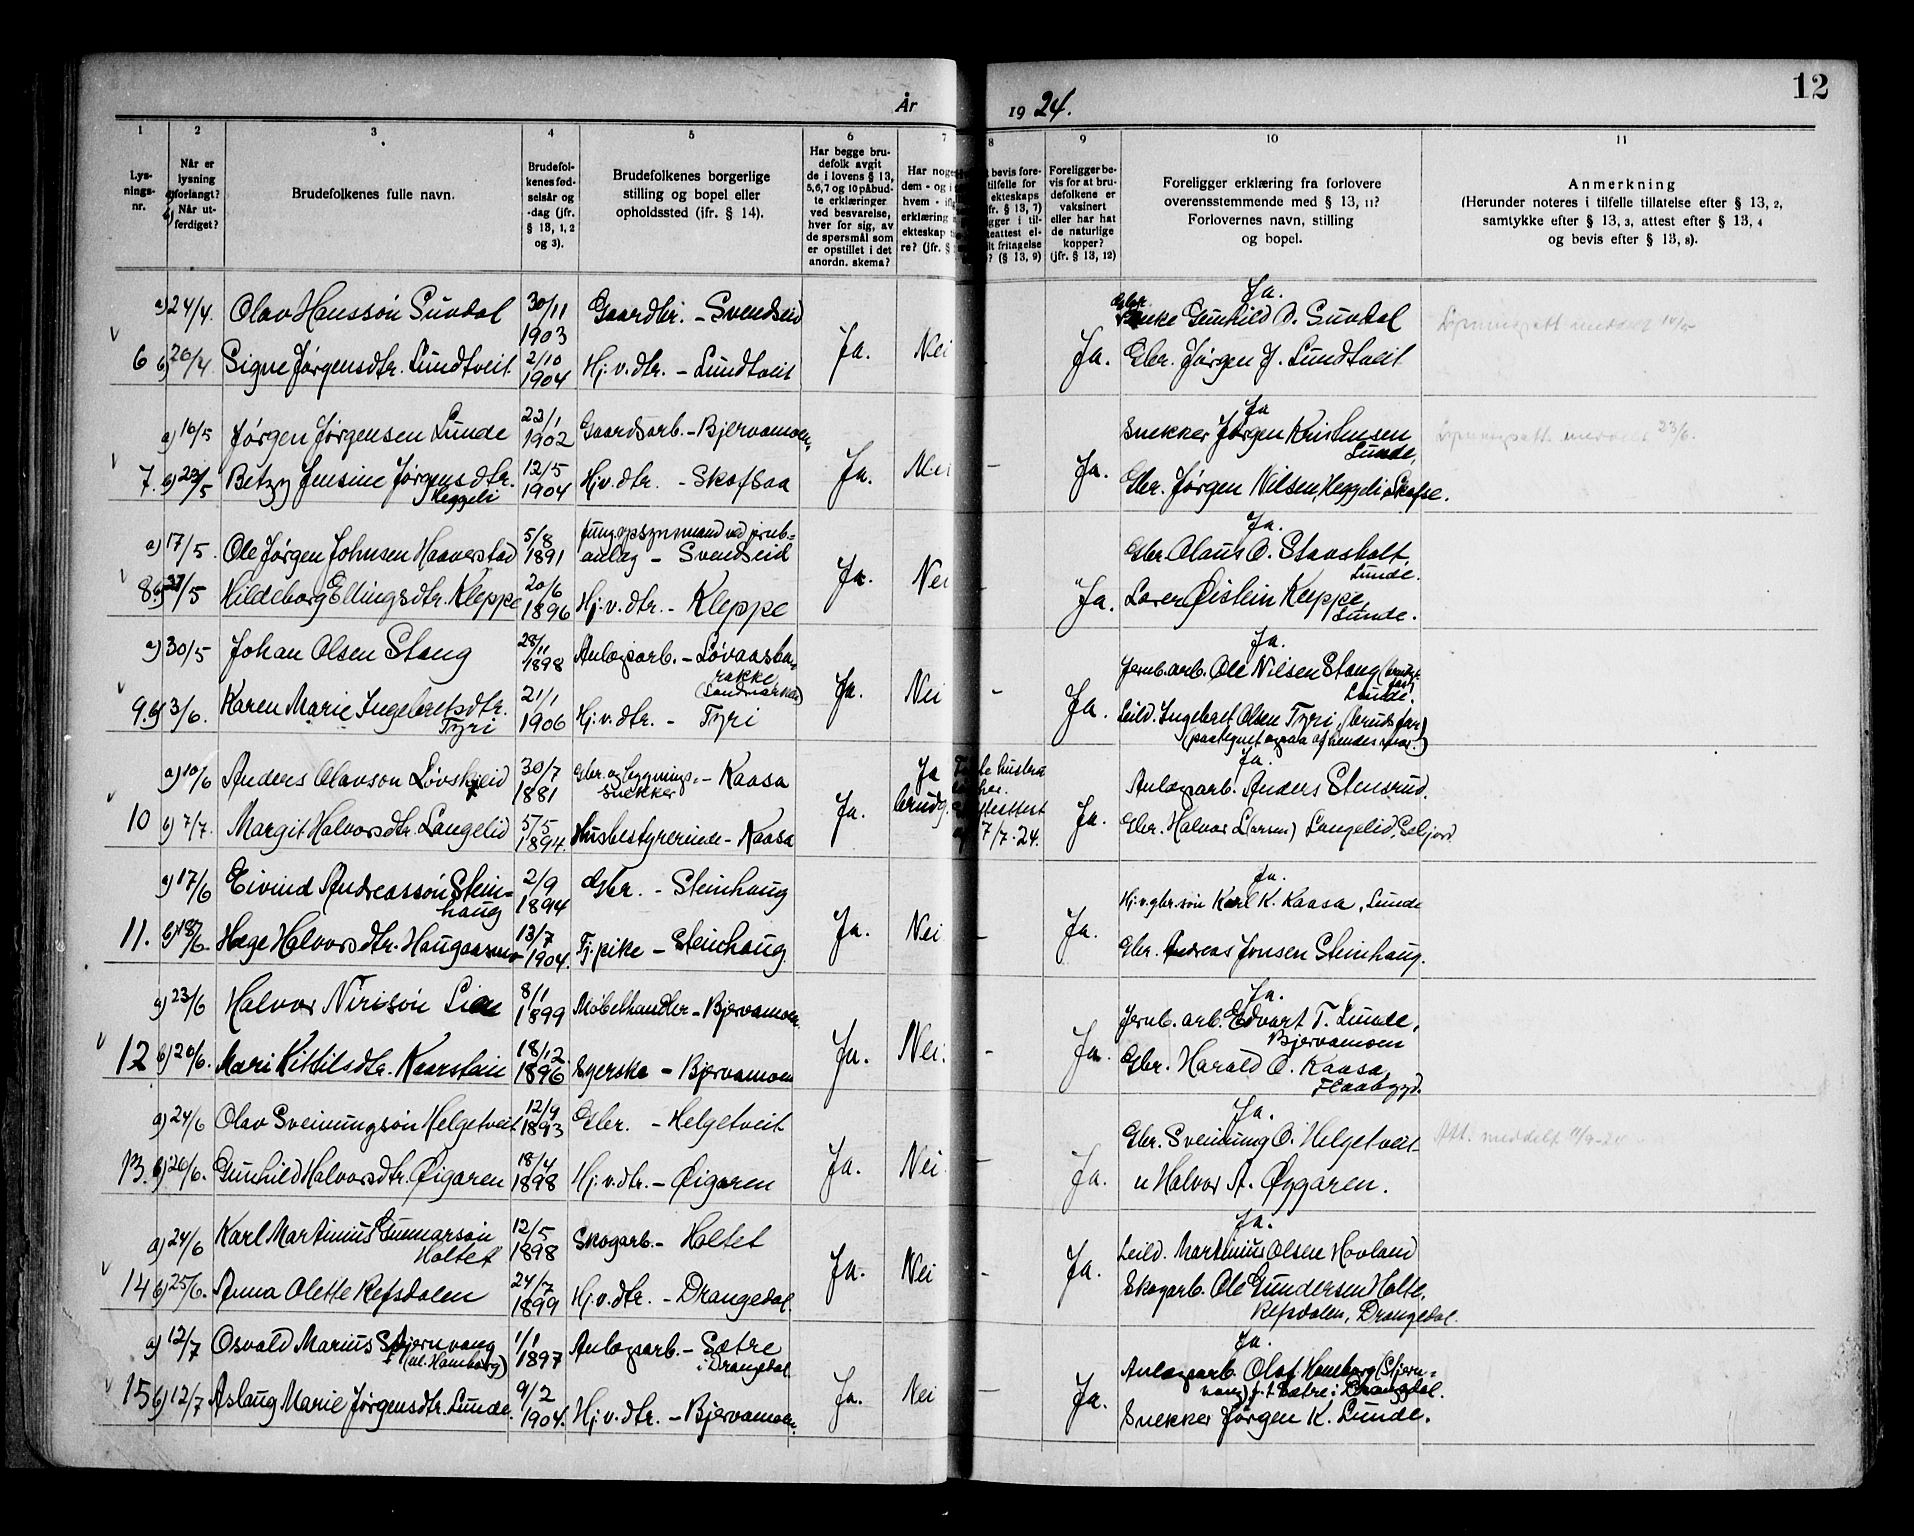 År 1924.
12
1
2
3
4
5
6
7
8
9
10
11
Lys-
nings-
nr.
Når er
lysning
a) forlangt?
b) Når ut-
ferdiget?
Brudefolkenes fulle navn.
Brudefol-
kenes fød-
selsår og
-dag (jfr.
§ 13, 1, 2
og 3).
Brudefolkenes borgerlige
stilling og bopel eller
opholdssted (jfr. § 14).
Har begge bru-
defolk avgit
de i lovens § 13,
5, 6, 7 og 10 påbud-
te erklæringer
ved besvarelse,
hver for sig, av
de spørsmål som
er opstillet i det
anordn. skema?
Har noge
dem - og i
hvem -
erklæring
ekteskap
re? (jfr. §
bevis fore-
tilfelle for
ekteskaps
fr. § 13, 7)
gger i til-
eattest el-
lt fritagelse
? (§ 13, 9)
Foreligger be-
vis for at bru-
defolkene er
vaksinert
eller har hat
de naturlige
kopper?
(jfr. § 13, 12)
Foreligger erklæring fra forlovere
overensstemmende med § 13, 11?
Forlovernes navn, stilling
og bopel.
Anmerkning
(Herunder noteres i tilfelle tillatelse efter § 13, 2,
samtykke efter § 13, 3, attest efter § 13, 4
og bevis efter § 13, 8).
a) 24/4. Olav Hansson Sundal 30/11 1903 Gaardbr. - Svendseid Ja.
Enke Gunhild O. Sundal
6 b) 26/4. Signe Jørgensdtr. Lundtveit 2/10 1904 Hj. v. dtr. - Lundtveit Ja. Nei - Ja. Gbr. Jørgen J. Lundtveit
a) 16/5 Jørgen Jørgensen Lunde 22/1 1902 Gaardsarb. - Bjervamoen Ja
Snekker Jørgen Kristensen
Lunde, 23/6.
7. b) 23/5 Betzy Jensine Jørgensdtr. 12/5 1904 Hj. v. dtr. - Skofsaa Ja. Nei - Ja. Gbr. Jørgen Nilsen, Heggeli, Skafse.
Heggeli
a) 17/5. Ole Jørgen Johnsen Haaverstad 5/8 1891 Fung. opsynsmand ved jernb=
anlæg - Svendseid Ja.
Gbr. Olaus O. Stavsholt,
Lunde.
8. b) 27/5 Hildeborg Ellingsdtr. Kleppe 20/6 1896 Hj. v. dtr. - Kleppe Ja. Nei - Ja. Lærer Øistein Kleppe,
Lunde.
a) 30/5 Johan Olsen Stang 28/11 1898 Anlægsarb. - Løvaasba=
rakke
(Landmarka) Ja.
Jernb. arb. Ole Nilsen Stang (brudg.
far)
Lunde.
9. b) 3/6. Karen Marie Ingebretsdtr. 21/1 1906 Hj. v. dtr. - Tyri Ja. Nei - Ja. Leild. Ingebret Olsen Tyri (bruds far)
Tyri (paategnet ogsaa af hendes mor.)
a) 10/6 Anders Olavson Løvskeid 30/7 1881 Gbr. og bygnings- - Kaasa
snekker Ja hustru Ja.
Anlægsarb. Anders Stensrud.
10 b) 7/7. Margit Halvorsdtr. Langelid 5/5 1894. Husbestyrerinde - Kaasa Ja. brudg. 7/7 - 24. Ja. Gbr. Halvor L(arsen) Langelid, Seljord
a) 17/6 Eivind Andreasson Stein= 2/9 1894 Gbr. - Steinhaug Ja.
haug Hj. v. gbr. søn Karl K. Kaasa, Lunde
11. b) 18/6 Hæge Halvorsdtr. Haugaasmo 13/7 1904. Tj. pike - Steinhaug Ja. Nei - Ja. Gbr. Andreas Jonsen Steinhaug.
a) 23/6 Halvor Nirisson Lien 8/1 1899 Møbelhandler - Bjervamoen. Ja.
Jernb. arb. Edvart T. Lunde,
Bjervamoen
12 b) 26/6. Mari Kittilsdtr. Kaarstein 18/12 1896 Syerske - Bjervamoen Ja. Nei. - Ja. Gbr. Harald O. Kaasa,
Flaabygd.
a) 24/6 Olav Sveinungson Helgetveit 12/9 1893 Gbr. - Helgetveit Ja.
Gbr. Sveinung O. Helgetveit Att. meddelt
13. b) 26/6. Gunhild Halvorsdtr. Øigaren 18/4 1898 Hj. v. dtr. - Øigaren Ja. Nei - Ja. " Halvor A. Øygaren.
a) 24/6 Karl Martinius Gunnarson 12/5 1898 Skogarb. - Holtet Ja.
Holtet Leild. Martinius Olsen Hovland
14 b) 25/6. Anna Olette Refsdalen 24/7 1899 Hj. v. dtr. - Drangedal. Ja. Nei - Ja. Skogarb. Ole Gundersen Holte,
Refsdalen, Drangedal.
a) 12/7 Osvald Marius Stjernvang 1/1 1897 Anlægsarb. - Sætre
(al. Hamborg) i Drangedal Ja.
Anlægsarb. Olaf Hamborg (Stjern=
vang) f. t. Sætre i Drangedal.
15 b) 12/7 Aslaug Marie Jørgensdtr. Lunde. 9/2 1904. Hj. v. dtr. - Bjervamoen. Ja. Nei - Ja. Snekker Jørgen K. Lunde.